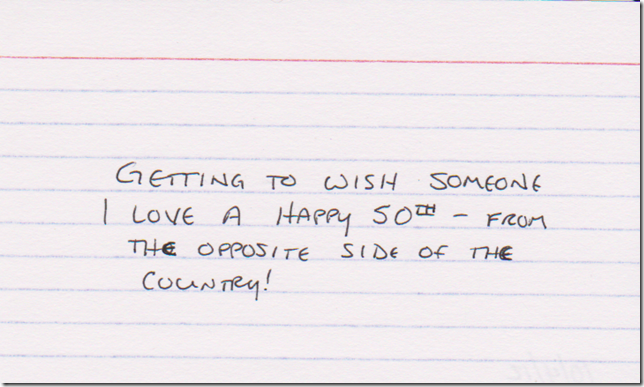 GETTING TO WISH SOMEONE
I LOVE A HAPPY 50TH - FROM
THE OPPOSITE SIDE OF THE
COUNTRY!